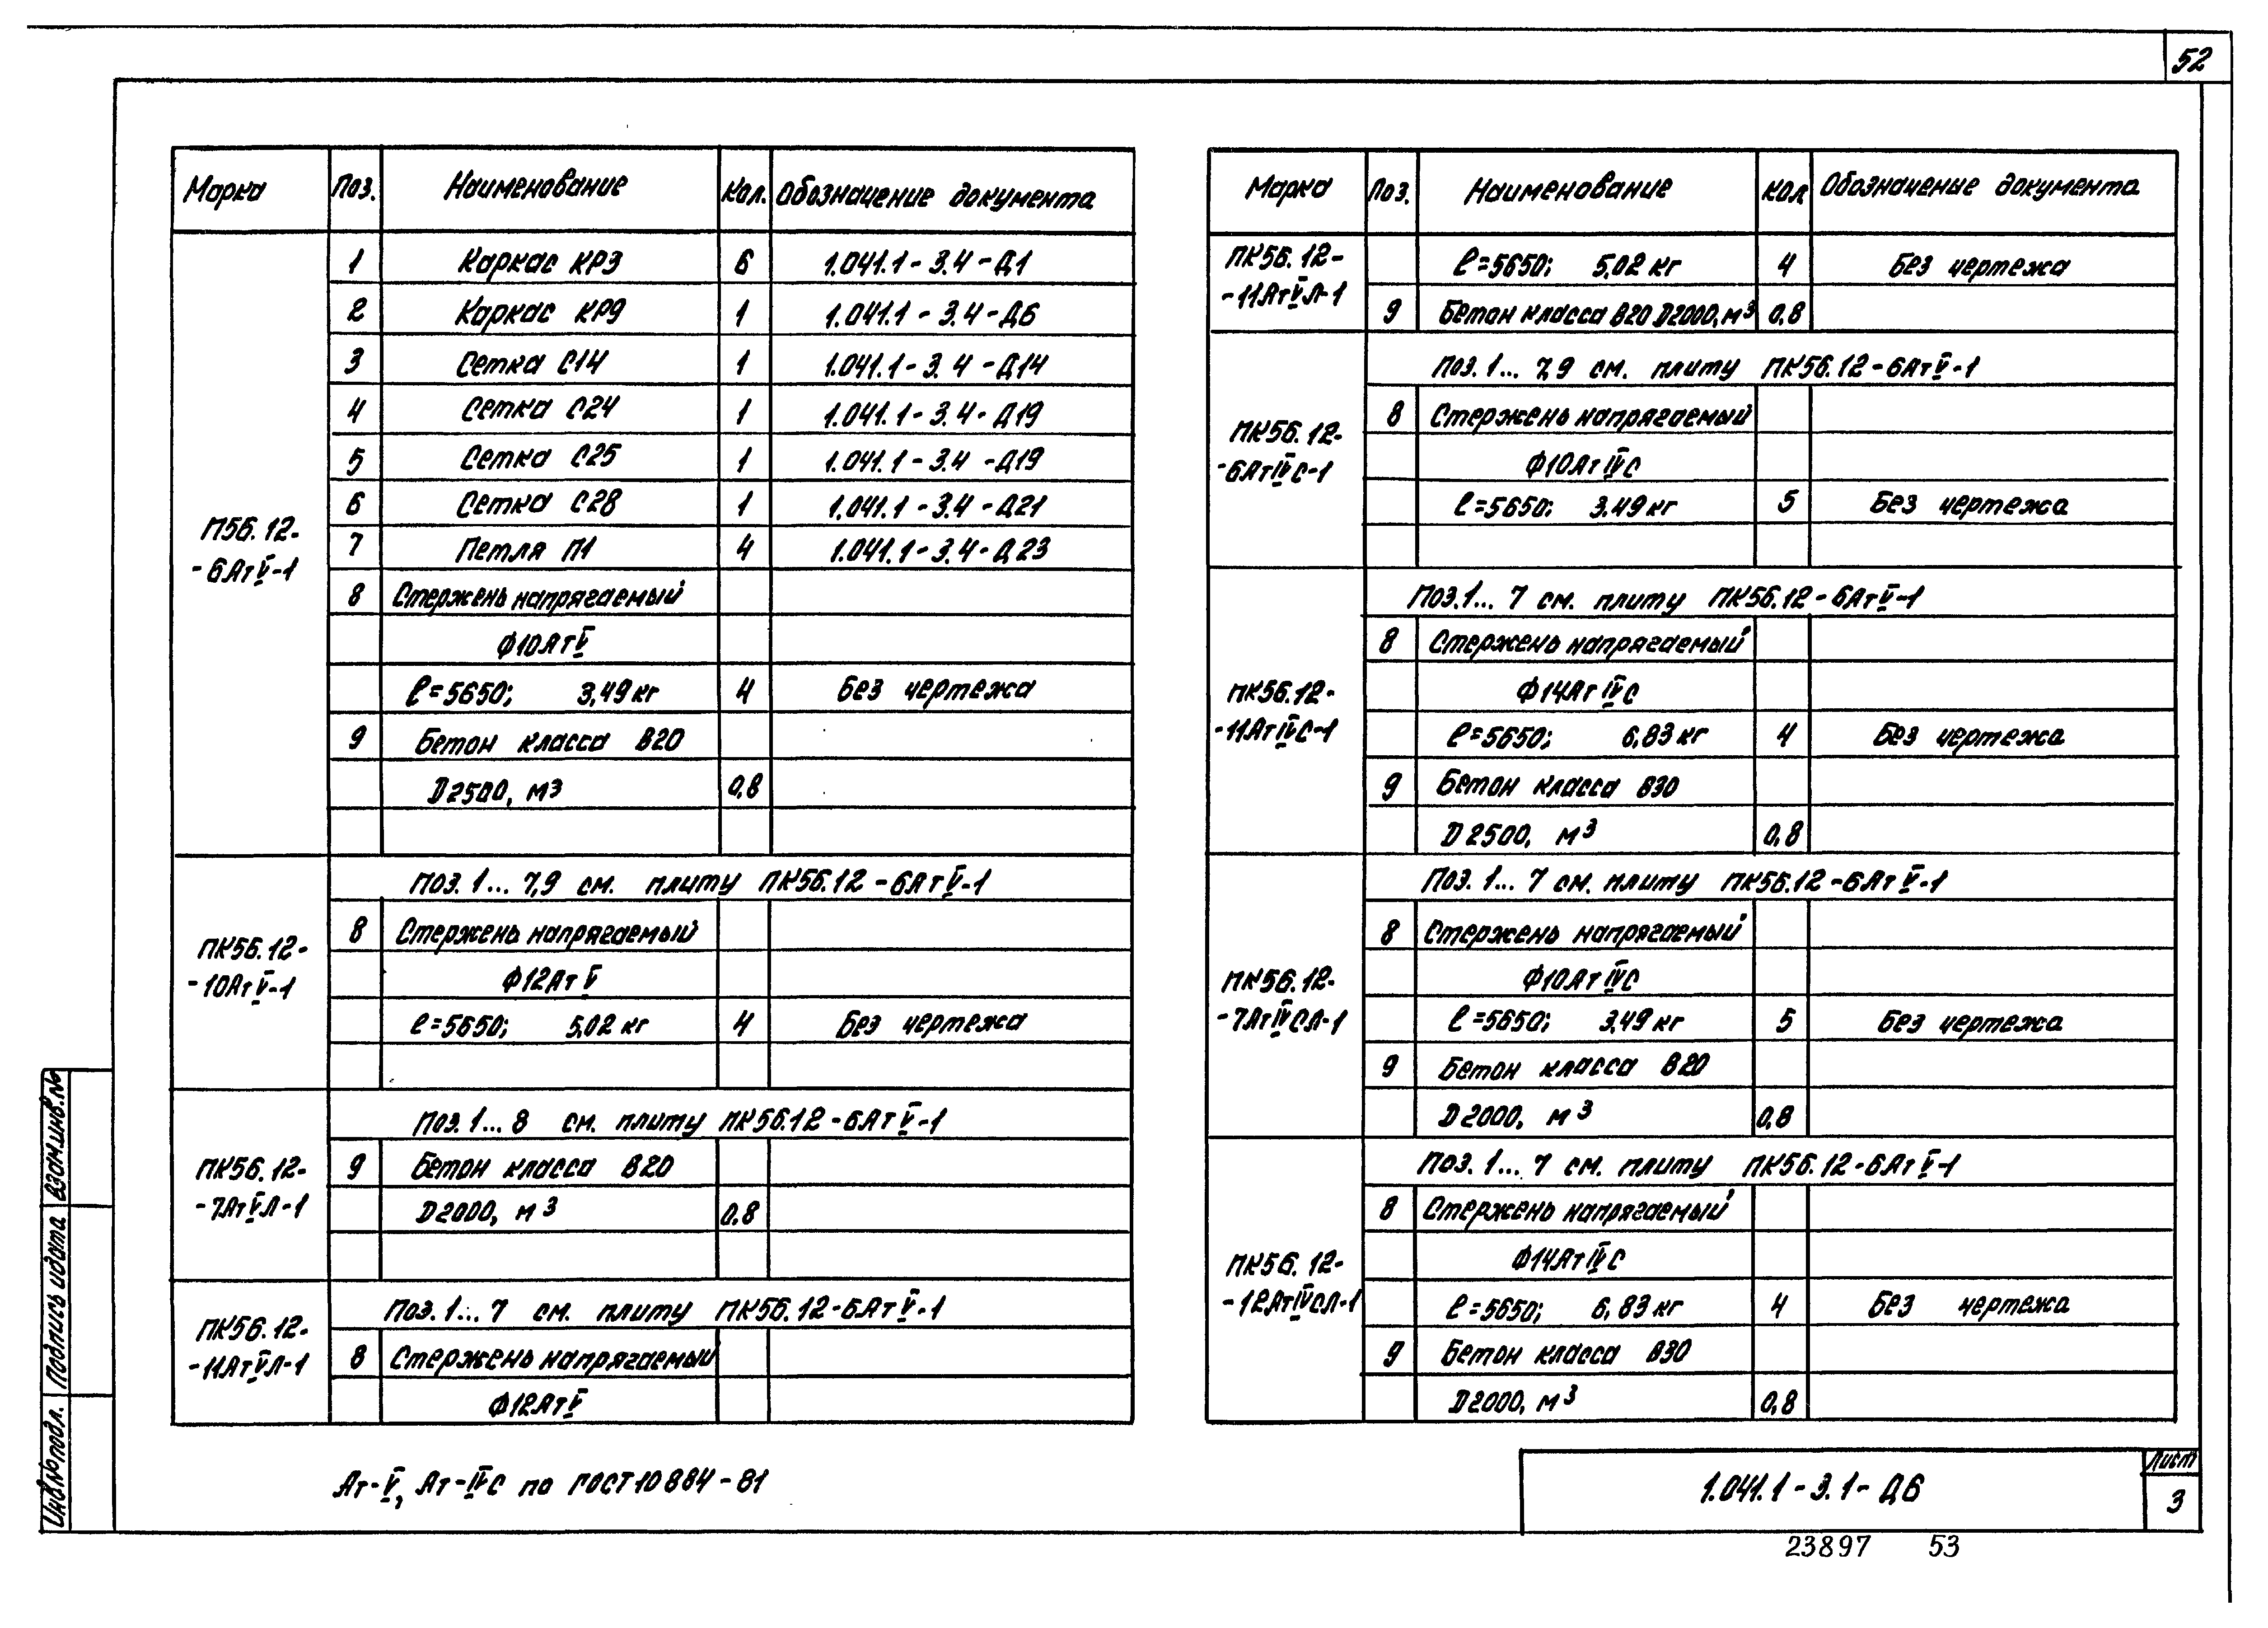 52
Марка Поз. Наименование Кол. Обозначение документа
П56.12-
-6АтV-1
1 Каркас КР3 6 1.041.1-3.4-Д1
2 Каркас КР9 1 1.041.1-3.4-Д6
3 Сетка С14 1 1.041.1-3.4-Д14
4 Сетка С24 1 1.041.1-3.4-Д19
5 Сетка С25 1 1.041.1-3.4-Д19
6 Сетка С28 1 1.041.1-3.4-Д21
7 Петля П1 4 1.041.1-3.4-Д23
8 Стержень напрягаемый
Ф10АтV
ℓ=5650; 3,49 кг 4 Без чертежа
9 Бетон класса В20
D2500, м3 0,8
ПК56.12-
-10АтV-1
Поз. 1... 7,9 см. плиту ПК56.12-6АтV-1
8 Стержень напрягаемый
Ф12АтV
ℓ=5650; 5,02 кг 4 Без чертежа
ПК56.12-
-7АтVЛ-1
Поз. 1... 8 см. плиту ПК56.12-6АтV-1
9 Бетон класса В20
D2000, м3 0,8
ПК56.12-
-11АтVЛ-1
Поз. 1... 7 см. плиту ПК56.12-6АтV-1
8 Стержень напрягаемый
Ф12АтV
Марка Поз. Наименование Кол Обозначение документа
ПК56.12-
-11АтVЛ-1
ℓ=5650; 5,02 кг 4 Без чертежа
9 Бетон класса В20 D2000, м3 0,8
ПК56.12-
-6АтIVС-1
Поз. 1... 7,9 см. плиту ПК56.12-6АтV-1
8 Стержень напрягаемый
Ф10АтIVС
ℓ=5650; 3.49 кг 5 Без чертежа
ПК56.12-
-11АтIVС-1
Поз. 1... 7 см. плиту ПК56.12-6АтV-1
8 Стержень напрягаемый
Ф14АтIVС
ℓ=5650; 6,83 кг 4 Без чертежа
9 Бетон класса В30
D2500, м3 0,8
ПК56.12-
-7АтIVСЛ-1
Поз. 1... 7 см. плиту ПК56.12-6АтV-1
8 Стержень напрягаемый
Ф10АтIVС
ℓ=5650; 3,49 кг 5 Без чертежа
9 Бетон класса В20
D2000, м3 0,8
ПК56.12-
-12АтIVСЛ-1
Поз. 1... 7 см. плиту ПК56.12-6АтV-1
8 Стержень напрягаемый
Ф14АтIVС
ℓ=5650; 6,83 кг 4 Без чертежа
9 Бетон класса В30
D2000, м3 0,8
Ат-V, Ат-IVС по ГОСТ 10884-81
1.041.1-3.1-Д6
Лист
3
23897 53
Инв.№подл. Подпись и дата Взам.инв.№